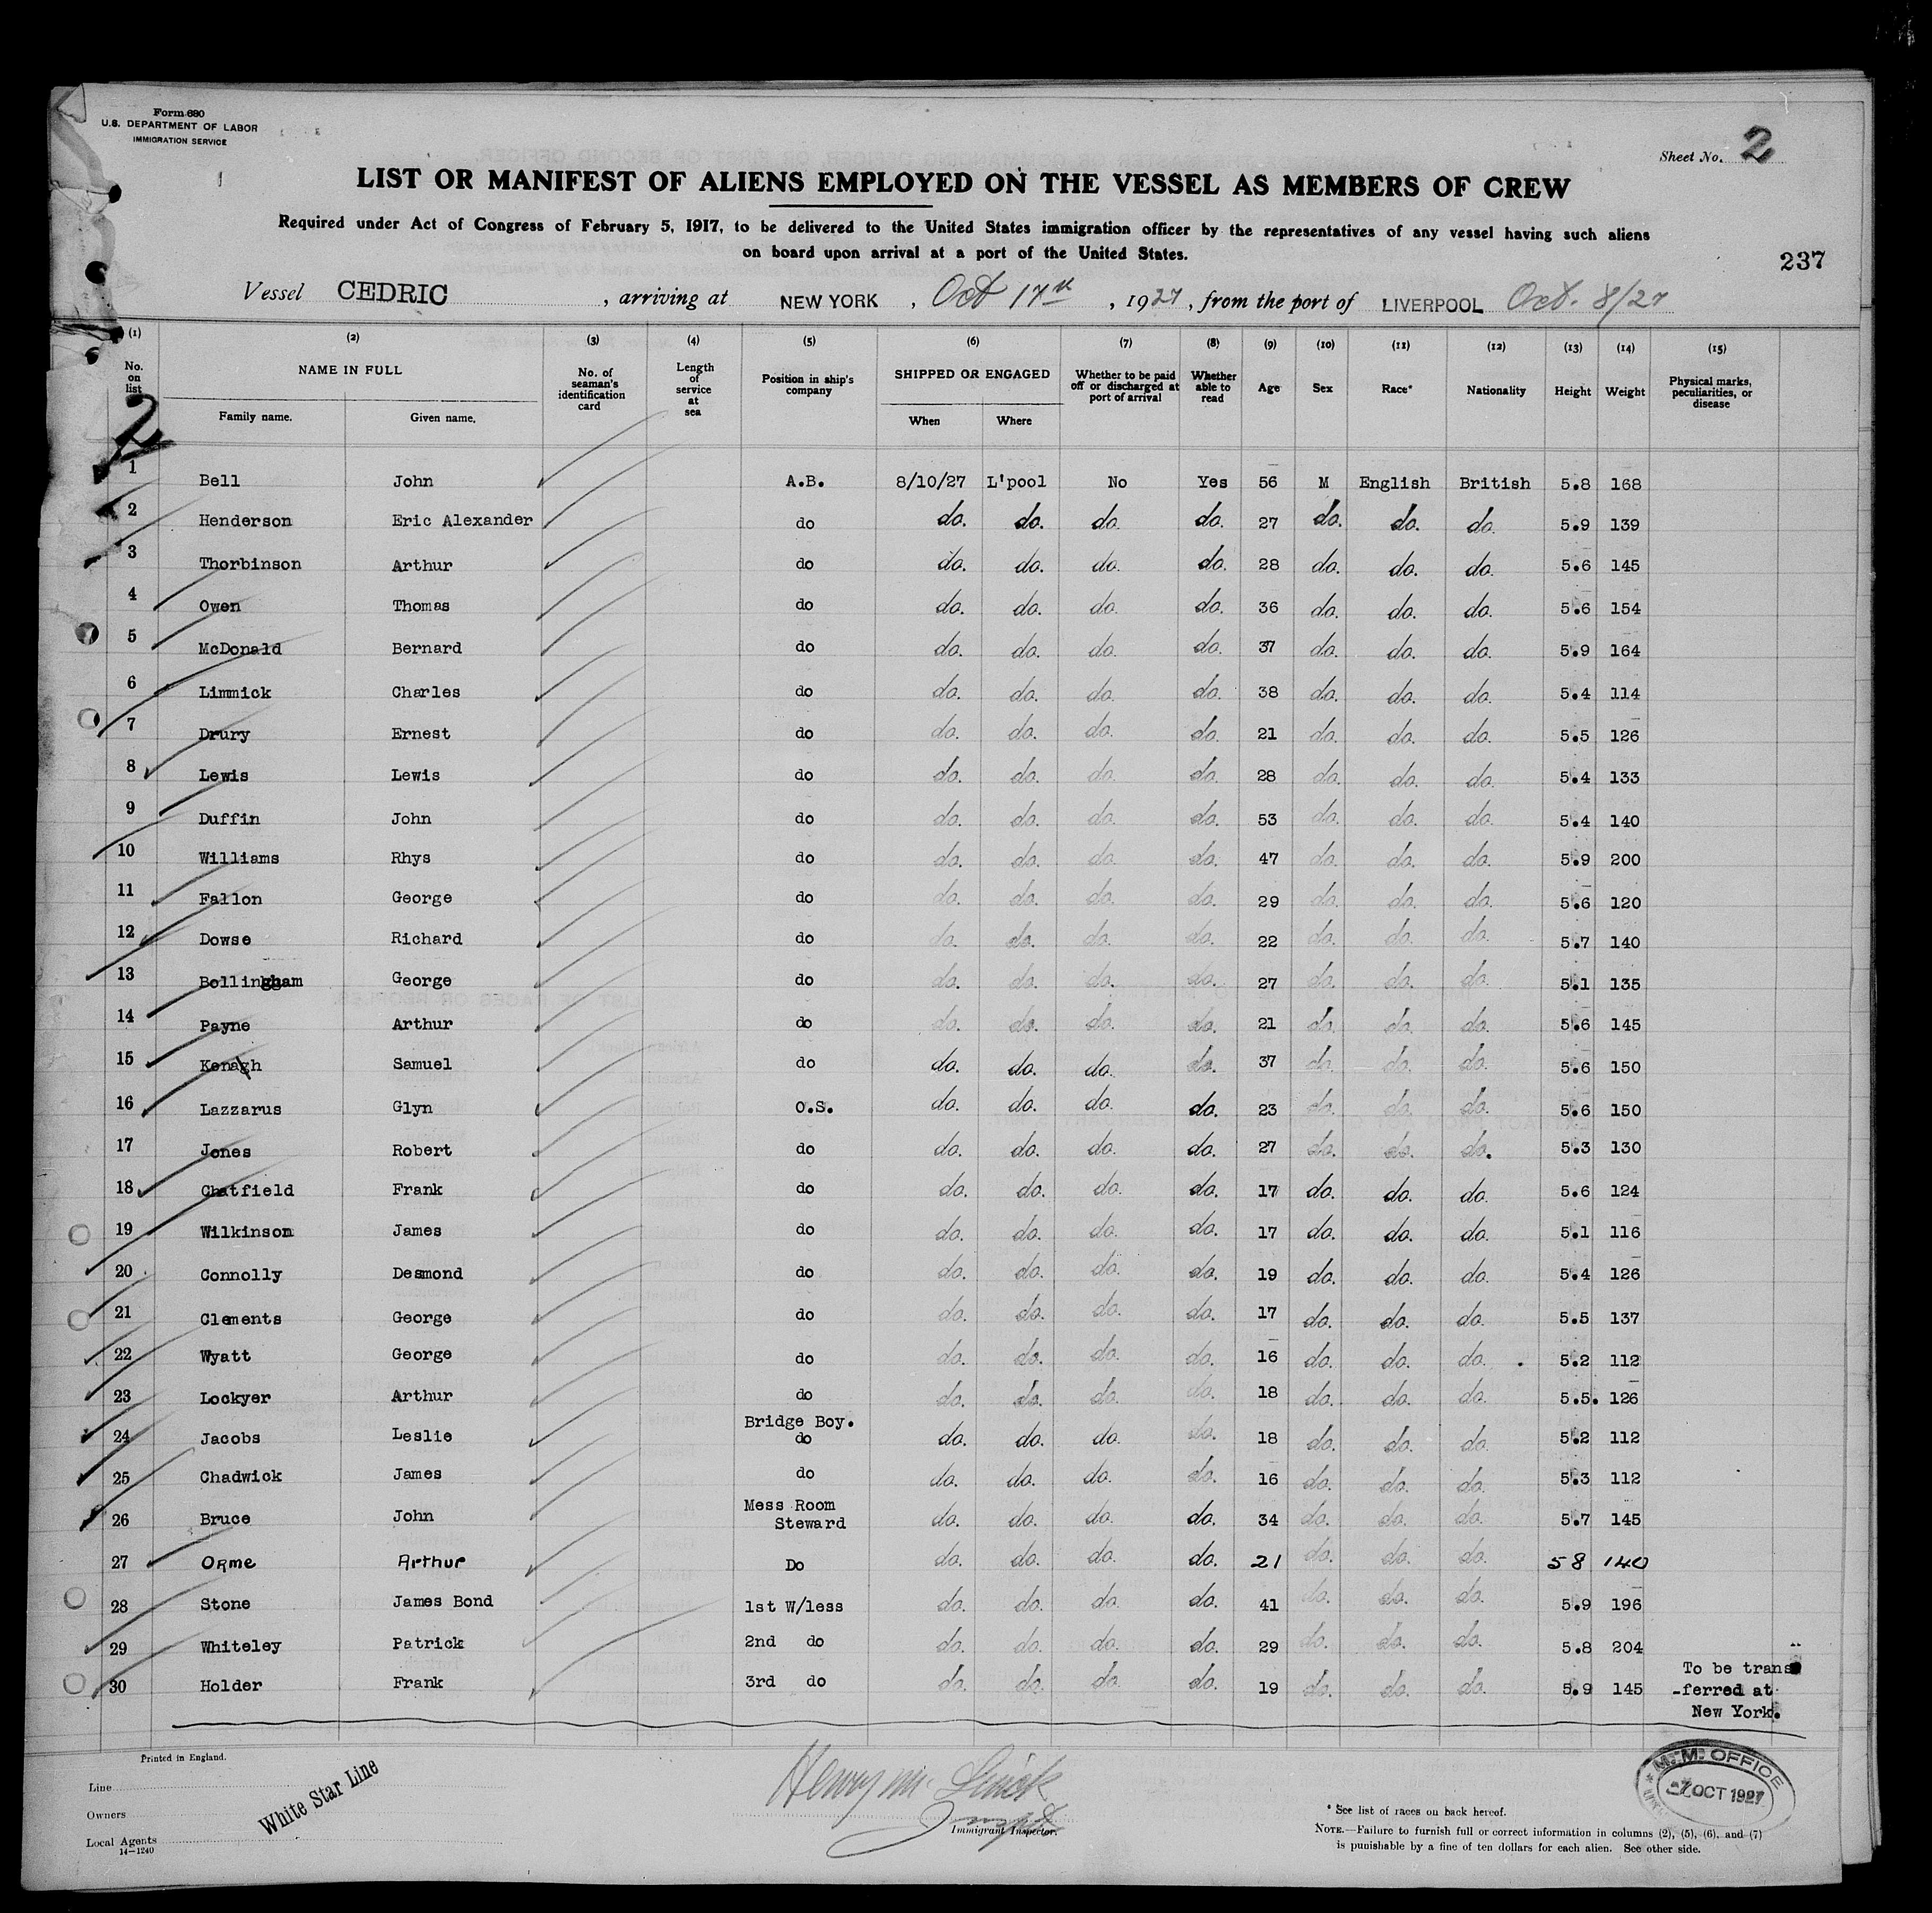 Form 680
U.S. DEPARTMENT OF LABOR
IMMIGRATION SERVICE
Sheet No. 2
LIST OR MANIFEST OF ALIENS EMPLOYED ON THE VESSEL AS MEMBERS OF CREW
Required under Act of Congress of February 5, 1917, to be delivered to the United States immigration officer by the representatives of any vessel having such aliens
on board upon arrival at a port of the United States.
237
Vessel CEDRIC , arriving at NEW YORK , Oct 17th , 1927 , from the port of LIVERPOOL Oct. 8/27
(1) (2) (3) (4) (5) (6) (7) (8) (9) (10) (11) (12) (13) (14) (15)
No. on list NAME IN FULL Family name. Given name. No. of seaman's identification card Length of service at sea Position in ship's company SHIPPED OR ENGAGED When Where Whether to be paid off or discharged at port of arrival Whether able to read Age Sex Race* Nationality Height Weight Physical marks, peculiarities, or disease
2
1 Bell John A.B. 8/10/27 L'pool No Yes 56 M English British 5.8 168
2 Henderson Eric Alexander do do. do. do. do. 27 do. do. do. 5.9 139
3 Thorbinson Arthur do do. do. do. do. 28 do. do. do. 5.6 145
4 Owen Thomas do do. do. do. do. 36 do. do. do. 5.6 154
5 McDonald Bernard do do. do. do. do. 37 do. do. do. 5.9 164
6 Limmick Charles do do. do. do. do. 38 do. do. do. 5.4 114
7 Drury Ernest do do. do. do. do. 21 do. do. do. 5.5 126
8 Lewis Lewis do do. do. do. do. 28 do. do. do. 5.4 133
9 Duffin John do do. do. do. do. 53 do. do. do. 5.4 140
10 Williams Rhys do do. do. do. do. 47 do. do. do. 5.9 200
11 Fallon George do do. do. do. do. 29 do. do. do. 5.6 120
12 Dowse Richard do do. do. do. do. 22 do. do. do. 5.7 140
13 Bollingham George do do. do. do. do. 27 do. do. do. 5.1 135
14 Payne Arthur do do. do. do. do. 21 do. do. do. 5.6 145
15 Kenagh Samuel do do. do. do. do. 37 do. do. do. 5.6 150
16 Lazzarus Glyn O.S. do. do. do. do. 23 do. do. do. 5.6 150
17 Jones Robert do do. do. do. do. 27 do. do. do. 5.3 130
18 Chatfield Frank do do. do. do. do. 17 do. do. do. 5.6 124
19 Wilkinson James do do. do. do. do. 17 do. do. do. 5.1 116
20 Connolly Desmond do do. do. do. do. 19 do. do. do. 5.4 126
21 Clements George do do. do. do. do. 17 do. do. do. 5.5 137
22 Wyatt George do do. do. do. do. 16 do. do. do. 5.2 112
23 Lockyer Arthur do do. do. do. do. 18 do. do. do. 5.5. 126
24 Jacobs Leslie Bridge Boy. do do. do. do. do. 18 do. do. do. 5.2 112
25 Chadwick James do do. do. do. do. 16 do. do. do. 5.3 112
26 Bruce John Mess Room Steward do. do. do. do. 34 do. do. do. 5.7 145
27 Orme Arthur Do do. do. do. do. 21 do. do. do. 5 8 140
28 Stone James Bond 1st W/less do. do. do. do. 41 do. do. do. 5.9 196
29 Whiteley Patrick 2nd do do. do. do. do. 29 do. do. do. 5.8 204
30 Holder Frank 3rd do do. do. do. do. 19 do. do. do. 5.9 145 To be trans
-ferred at
New York.
Printed in England.
Line
Owners
Local Agents
14-1240
White Star Line
Immigrant Inspector.
M.M. OFFICE
7 OCT 1927
* See list of races on back hereof.
NOTE.—Failure to furnish full or correct information in columns (2), (5), (6), and (7)
is punishable by a fine of ten dollars for each alien. See other side.